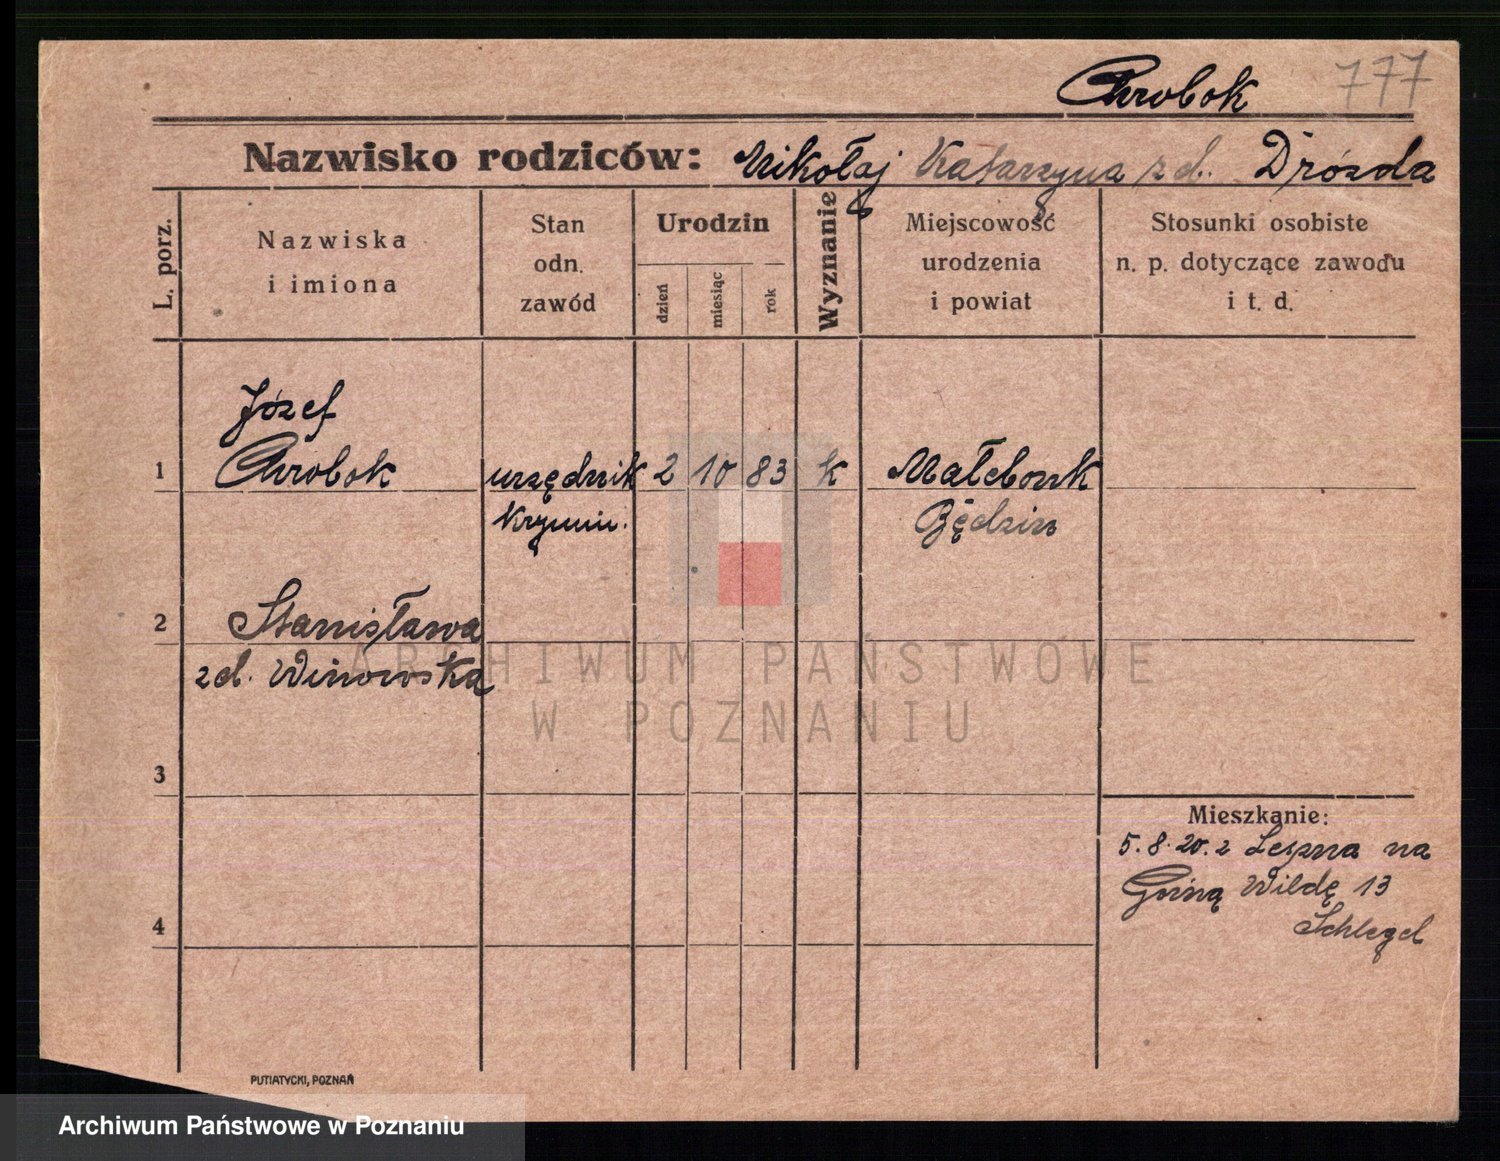 Chrobok 777
Nazwisko rodziców: Mikołaj Katarzyna zd. Drózda
L. porz.
Nazwiska
i imiona
Stan
odn.
zawód
Urodzin
dzień
miesiąc
rok
Wyznanie
Miejscowość
urodzenia
i powiat
Stosunki osobiste
n. p. dotyczące zawodu
i t. d.
Józef
1 Chrobok urzędnik 2 10 83 k Małebonk
Krymin. Będzin
2 Stanisława
zd. Winowska
ARCHIWUM PAŃSTWOWE
W POZNANIU
3
Mieszkanie:
5.8.20. z Leszna na
Górną Wildę 13
Schlegel
4
PUTIATYCKI, POZNAŃ
Archiwum Państwowe w Poznaniu